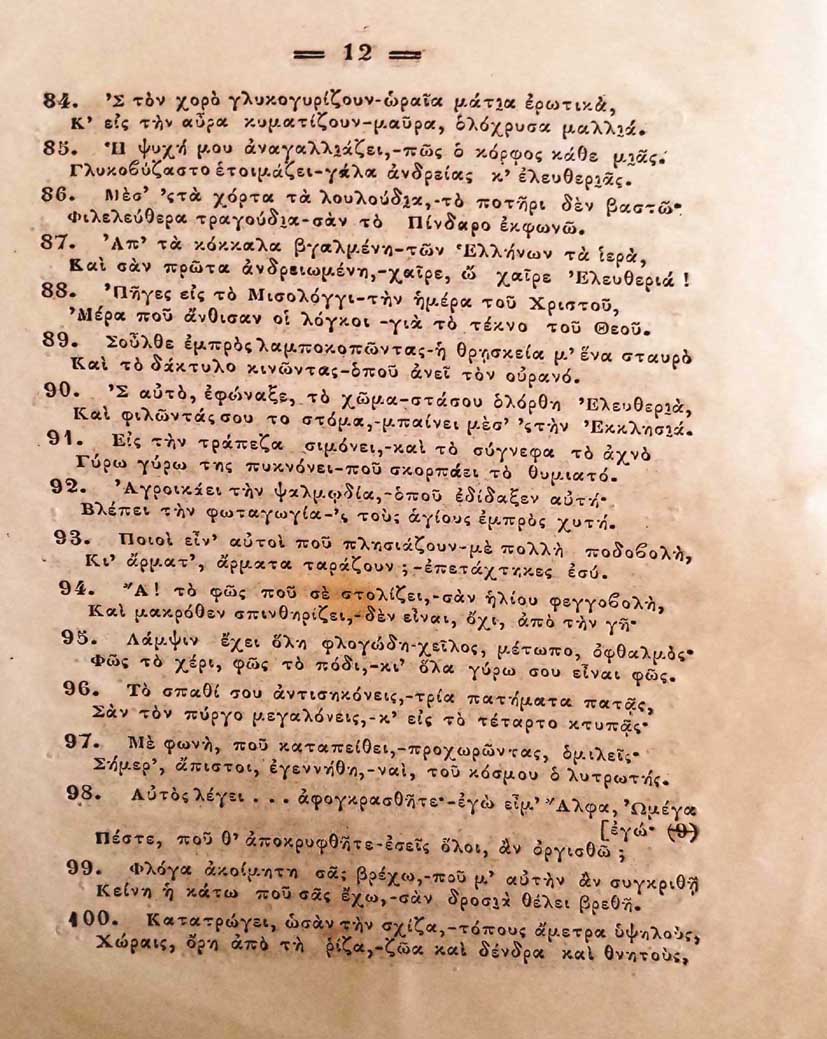 = 12 =
84. Ἐς τὸν χορὸ γλυκογυρίζουν-ὡραῖα μάτια ἐρωτικὰ,
Κ’ εἰς τὴν αὖρα κυματίζουν-μαῦρα, ὁλόχρυσα μαλλιά.
85. Ἡ ψυχή μου ἀναγαλλιάζει,-πῶς ὁ κόρφος κάθε μιᾶς.
Γλυκοβύζαστο ἑτοιμάζει-γάλα ἀνδρείας κ’ ἐλευθεριᾶς.
86. Μὲσ’ ’ςτὰ χόρτα τὰ λουλούδια,-τὸ ποτῆρι δὲν βαστῶ·
Φιλελεύθερα τραγούδια-σὰν τὸ Πίνδαρο ἐκφωνῶ.
87. Ἀπ’ τὰ κόκκαλα βγαλμένη-τῶν Ἑλλήνων τὰ ἱερὰ,
Καὶ σὰν πρῶτα ἀνδρειωμένη,-χαῖρε, ὦ χαῖρε Ἐλευθεριά !
88. Ἐπῆγες εἰς τὸ Μισολόγγι-τὴν ἡμέρα τοῦ Χριστοῦ,
Ἠμέρα ποῦ ἄνθισαν οἱ λόγκοι -γιὰ τὸ τέκνο τοῦ Θεοῦ.
89. Σοῦλθε ἐμπρὸς λαμποκοπῶντας-ἡ θρησκεία μ’ ἕνα σταυρὸ
Καὶ τὸ δάκτυλο κινῶντας-ὁποῦ ἀνεῖ τὸν οὐρανό.
90. Ἐς αὐτὸ, ἐφώναξε, τὸ χῶμα-στάσου ὁλόρθη Ἐλευθεριὰ,
Καὶ φιλῶντάς σου το στόμα,-μπαίνει μὲσ’ ’ςτὴν Ἐκκλησιά.
91. Εἰς τὴν τράπεζα σιμόνει,-καὶ τὸ σύγνεφα τὸ ἀχνὸ
Γύρω γύρω της πυκνόνει-ποῦ σκορπάει τὸ θυμιατό.
92. Ἀγροικάει τὴν ψαλμῳδία,-ὁποῦ ἐδίδαξεν αὐτή·
Βλέπει τὴν φωταγωγία-’ς τοὺς ἁγίους ἐμπρὸς χυτή.
93. Ποιοὶ εἶν’ αὐτοὶ ποῦ πλησιάζουν-μὲ πολλὴ ποδοβολὴ,
Κι’ ἄρματ’, ἄρματα ταράζουν ; -ἐπετάχτηκες ἐσύ.
94. Ἄ! τὸ φῶς ποῦ σὲ στολίζει,-σὰν ἡλίου φεγγοβολὴ,
Καὶ μακρόθεν σπινθηρίζει,-δὲν εἶναι, ὄχι, ἀπὸ τὴν γῆ·
95. Λάμψιν ἔχει ὅλη φλογώδη-χεῖλος, μέτωπο, ὀφθαλμὸς·
Φῶς τὸ χέρι, φῶς τὸ πόδι,-κι’ ὅλα γύρω σου εἶναι φῶς.
96. Τὸ σπαθί σου ἀντισηκόνεις,-τρία πατήματα πατᾷς,
Σὰν τὸν πύργο μεγαλόνεις,-κ’ εἰς τὸ τέταρτο κτυπᾷς·
97. Μὲ φωνὴ, ποῦ καταπείθει,-προχωρῶντας, ὁμιλεῖς·
Σήμερ’, ἄπιστοι, ἐγεννήθη,-ναὶ, τοῦ κόσμου ὁ λυτρωτής.
98. Αὐτὸς λέγει . . . ἀφογκρασθῆτε·-ἐγὼ εἶμ’ Ἄλφα, Ὠμέγα
[ἐγώ· (9)
Πέστε, ποῦ θ’ ἀποκρυφθῆτε-ἐσεῖς ὅλοι, ἂν ὀργισθῶ ;
99. Φλόγα ἀκοίμητη σᾶς βρέχω,-ποῦ μ’ αὐτὴν ἂν συγκριθῇ
Κείνη ἡ κάτω ποῦ σᾶς ἔχω,-σὰν δροσιὰ θέλει βρεθῆ.
100. Κατατρώγει, ὡσὰν τὴν σχίζα,-τόπους ἄμετρα ὑψηλοὺς,
Χώραις, ὄρη ἀπὸ τὴ ῥίζα,-ζῶα καὶ δένδρα καὶ θνητοὺς,